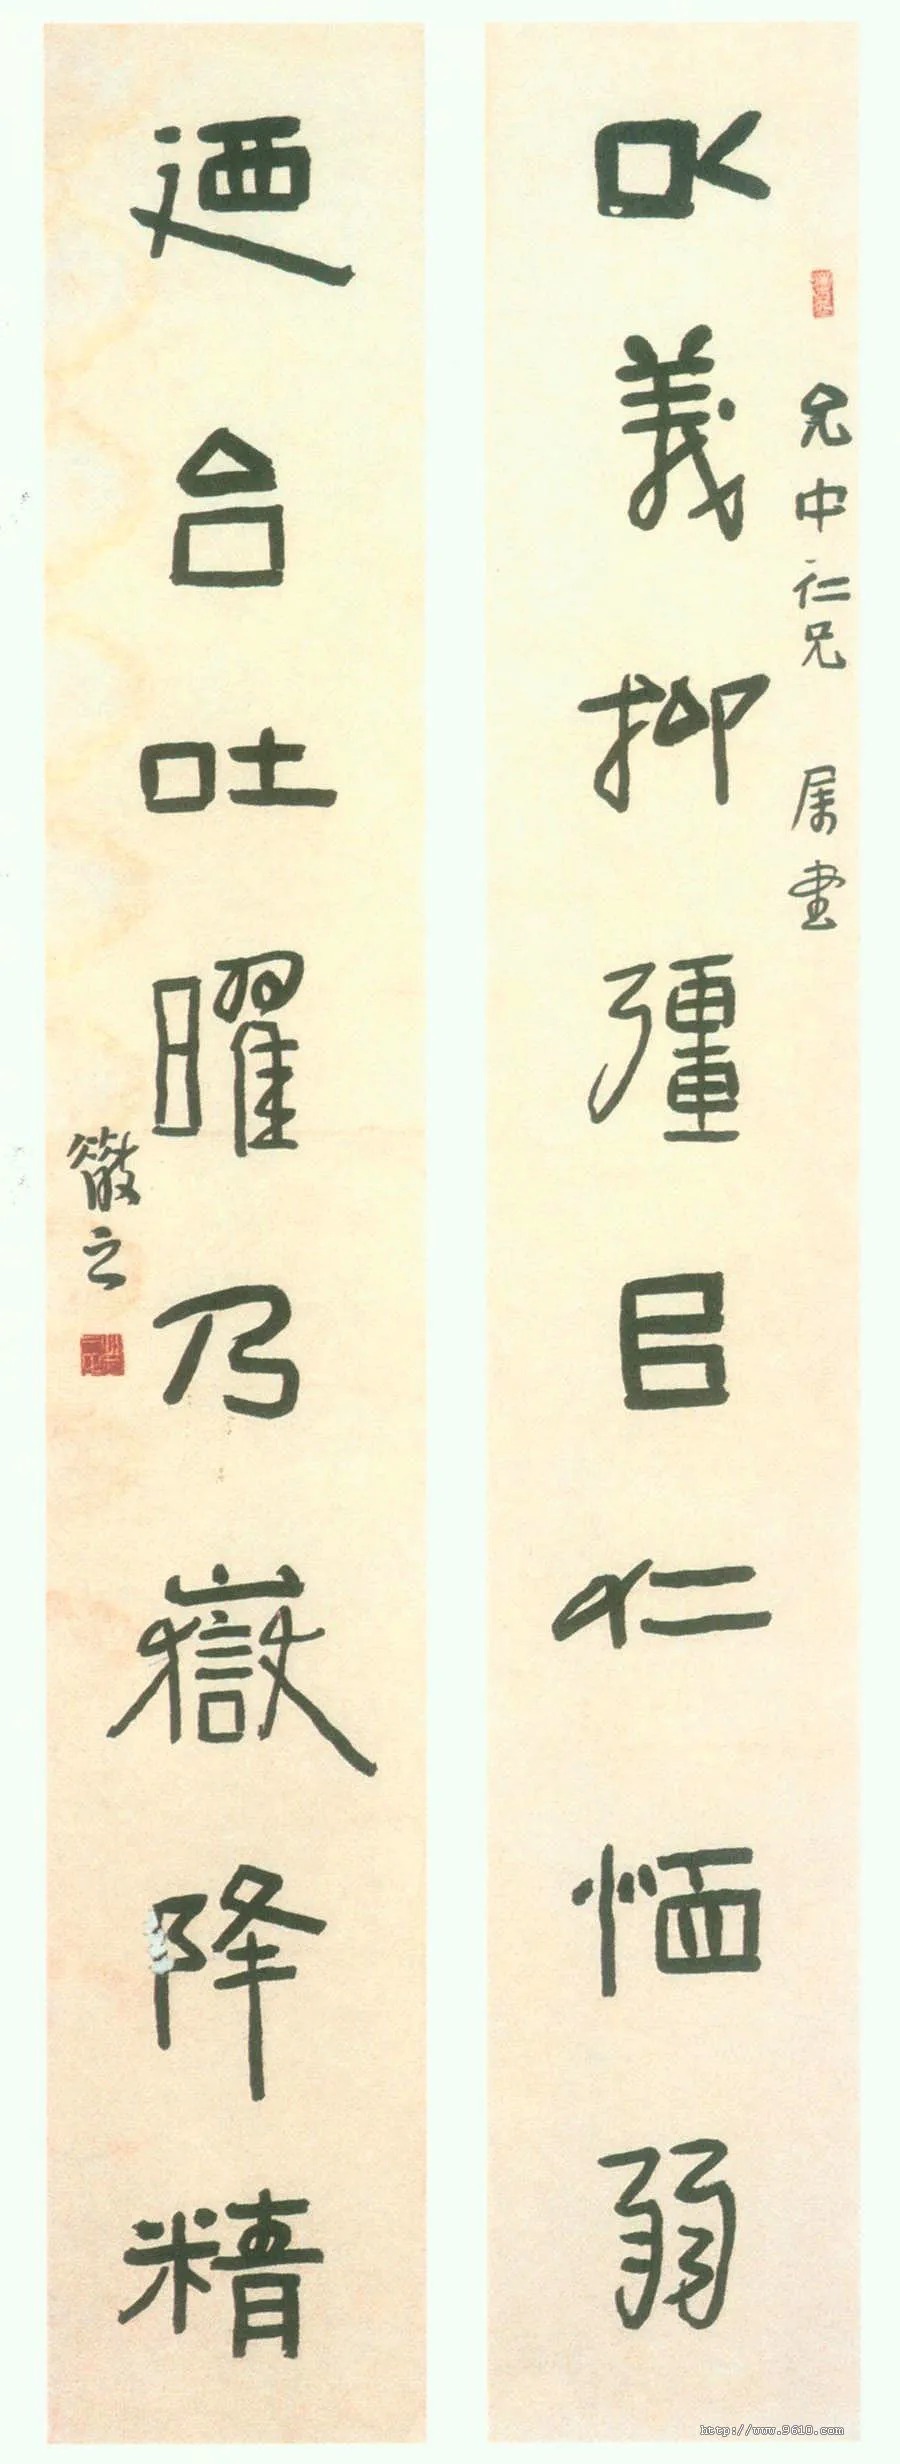 允中仁兄 属書
以義抑彊㠯仁恤弱
廼台吐曜乃嶽降精
之
http://www.9610.com